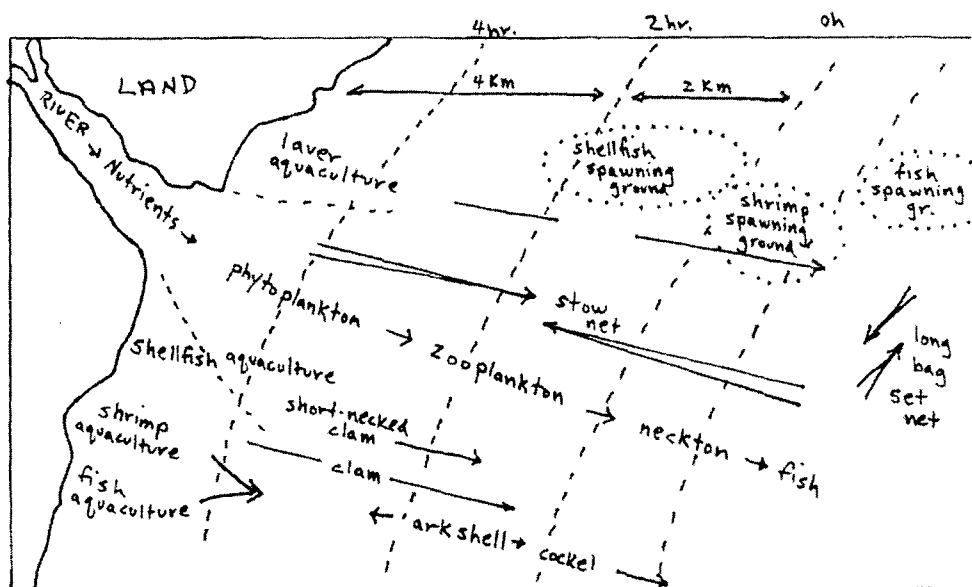 4hr.
2hr.
0h
LAND
4 Km
2 Km
RIVER → Nutrients →
laver
aquaculture
shellfish
spawning
ground
shrimp
spawning
ground
fish
spawning
gr.
phytoplankton → zooplankton → neckton → fish
stow
net
long
bag
set
net
shellfish aquaculture
short-necked
clam
clam
shrimp
aquaculture
fish
aquaculture
← arkshell → cockel